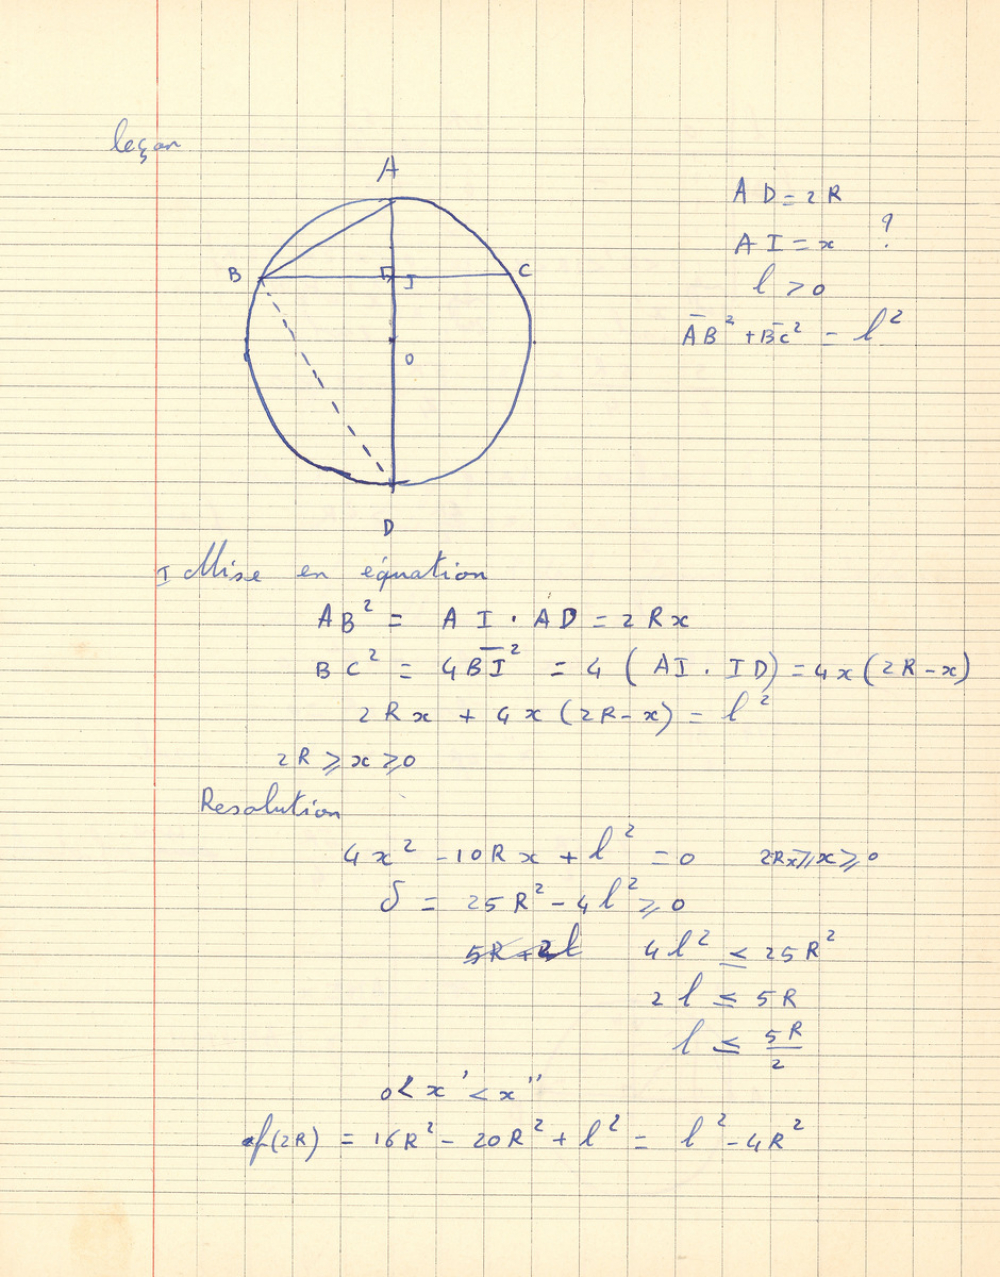 leçon
A
B
C
I
O
D
A D = 2 R
A I = x ?
l > 0
A̅B̅² + B̅C̅² = l²
I Mise en équation
AB² = A I . A D = 2 R x
B C² = 4 B̅I̅² = 4 ( A I . I D ) = 4 x ( 2 R - x )
2 R x + 4 x ( 2 R - x ) = l²
2 R ⩾ x ⩾ 0
Resolution
4 x² - 10 R x + l² = 0 2Rx ⩾ x ⩾ 0
δ = 25 R² - 4 l² ⩾ 0
4 l² ≤ 25 R²
2 l ≤ 5 R
l ≤ 5 R / 2
0 < x' < x''
f(2R) = 16 R² - 20 R² + l² = l² - 4 R²